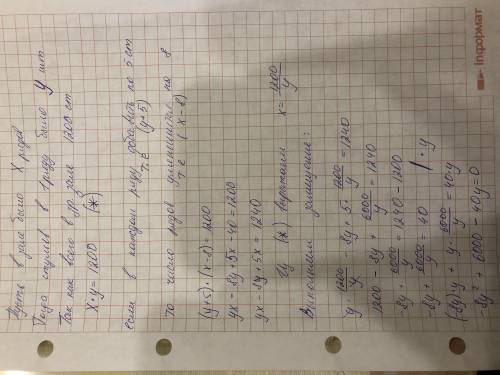 Пусть в зале было X рядов
Тогда стульев в 1 ряду было y шт
Так как всего в др. зале 1200 ст.
X·y=1200 (*)
если в каждом ряду добавить по 5 ст
т.е (y+5)
то число рядов уменьшиться на 8
т.е (x-8)
(y+5)·(x-8)=1200
yx-8y+5x-40=1200
yx-8y+5x=1240
Из (*) выражаем x=1200/y
Выполняем замещение:
y·1200/y-8y+5·1200/y=1240
1200-8y+6000/y=1240
-8y+6000/y=1240-1200
-8y+6000/y=40 |·y
(-8y)·y+y·6000/y=40·y
-8y²+6000-40y=0
informат